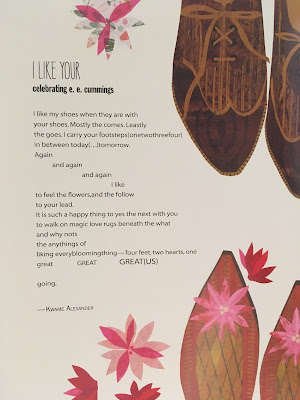 I LIKE YOUR
celebrating e. e. cummings
I like my shoes when they are with
your shoes. Mostly the comes. Leastly
the goes. I carry your footsteps(onetwothreefour)
in between today(...)tomorrow.
Again
and again
and again
I like
to feel the flowers,and the follow
to your lead.
It is such a happy thing to yes the next with you
to walk on magic love rugs beneath the what
and why nots
the anythings of
liking everybloomingthing—four feet, two hearts, one
great GREAT GREAT(US)
going.
—Kwame Alexander